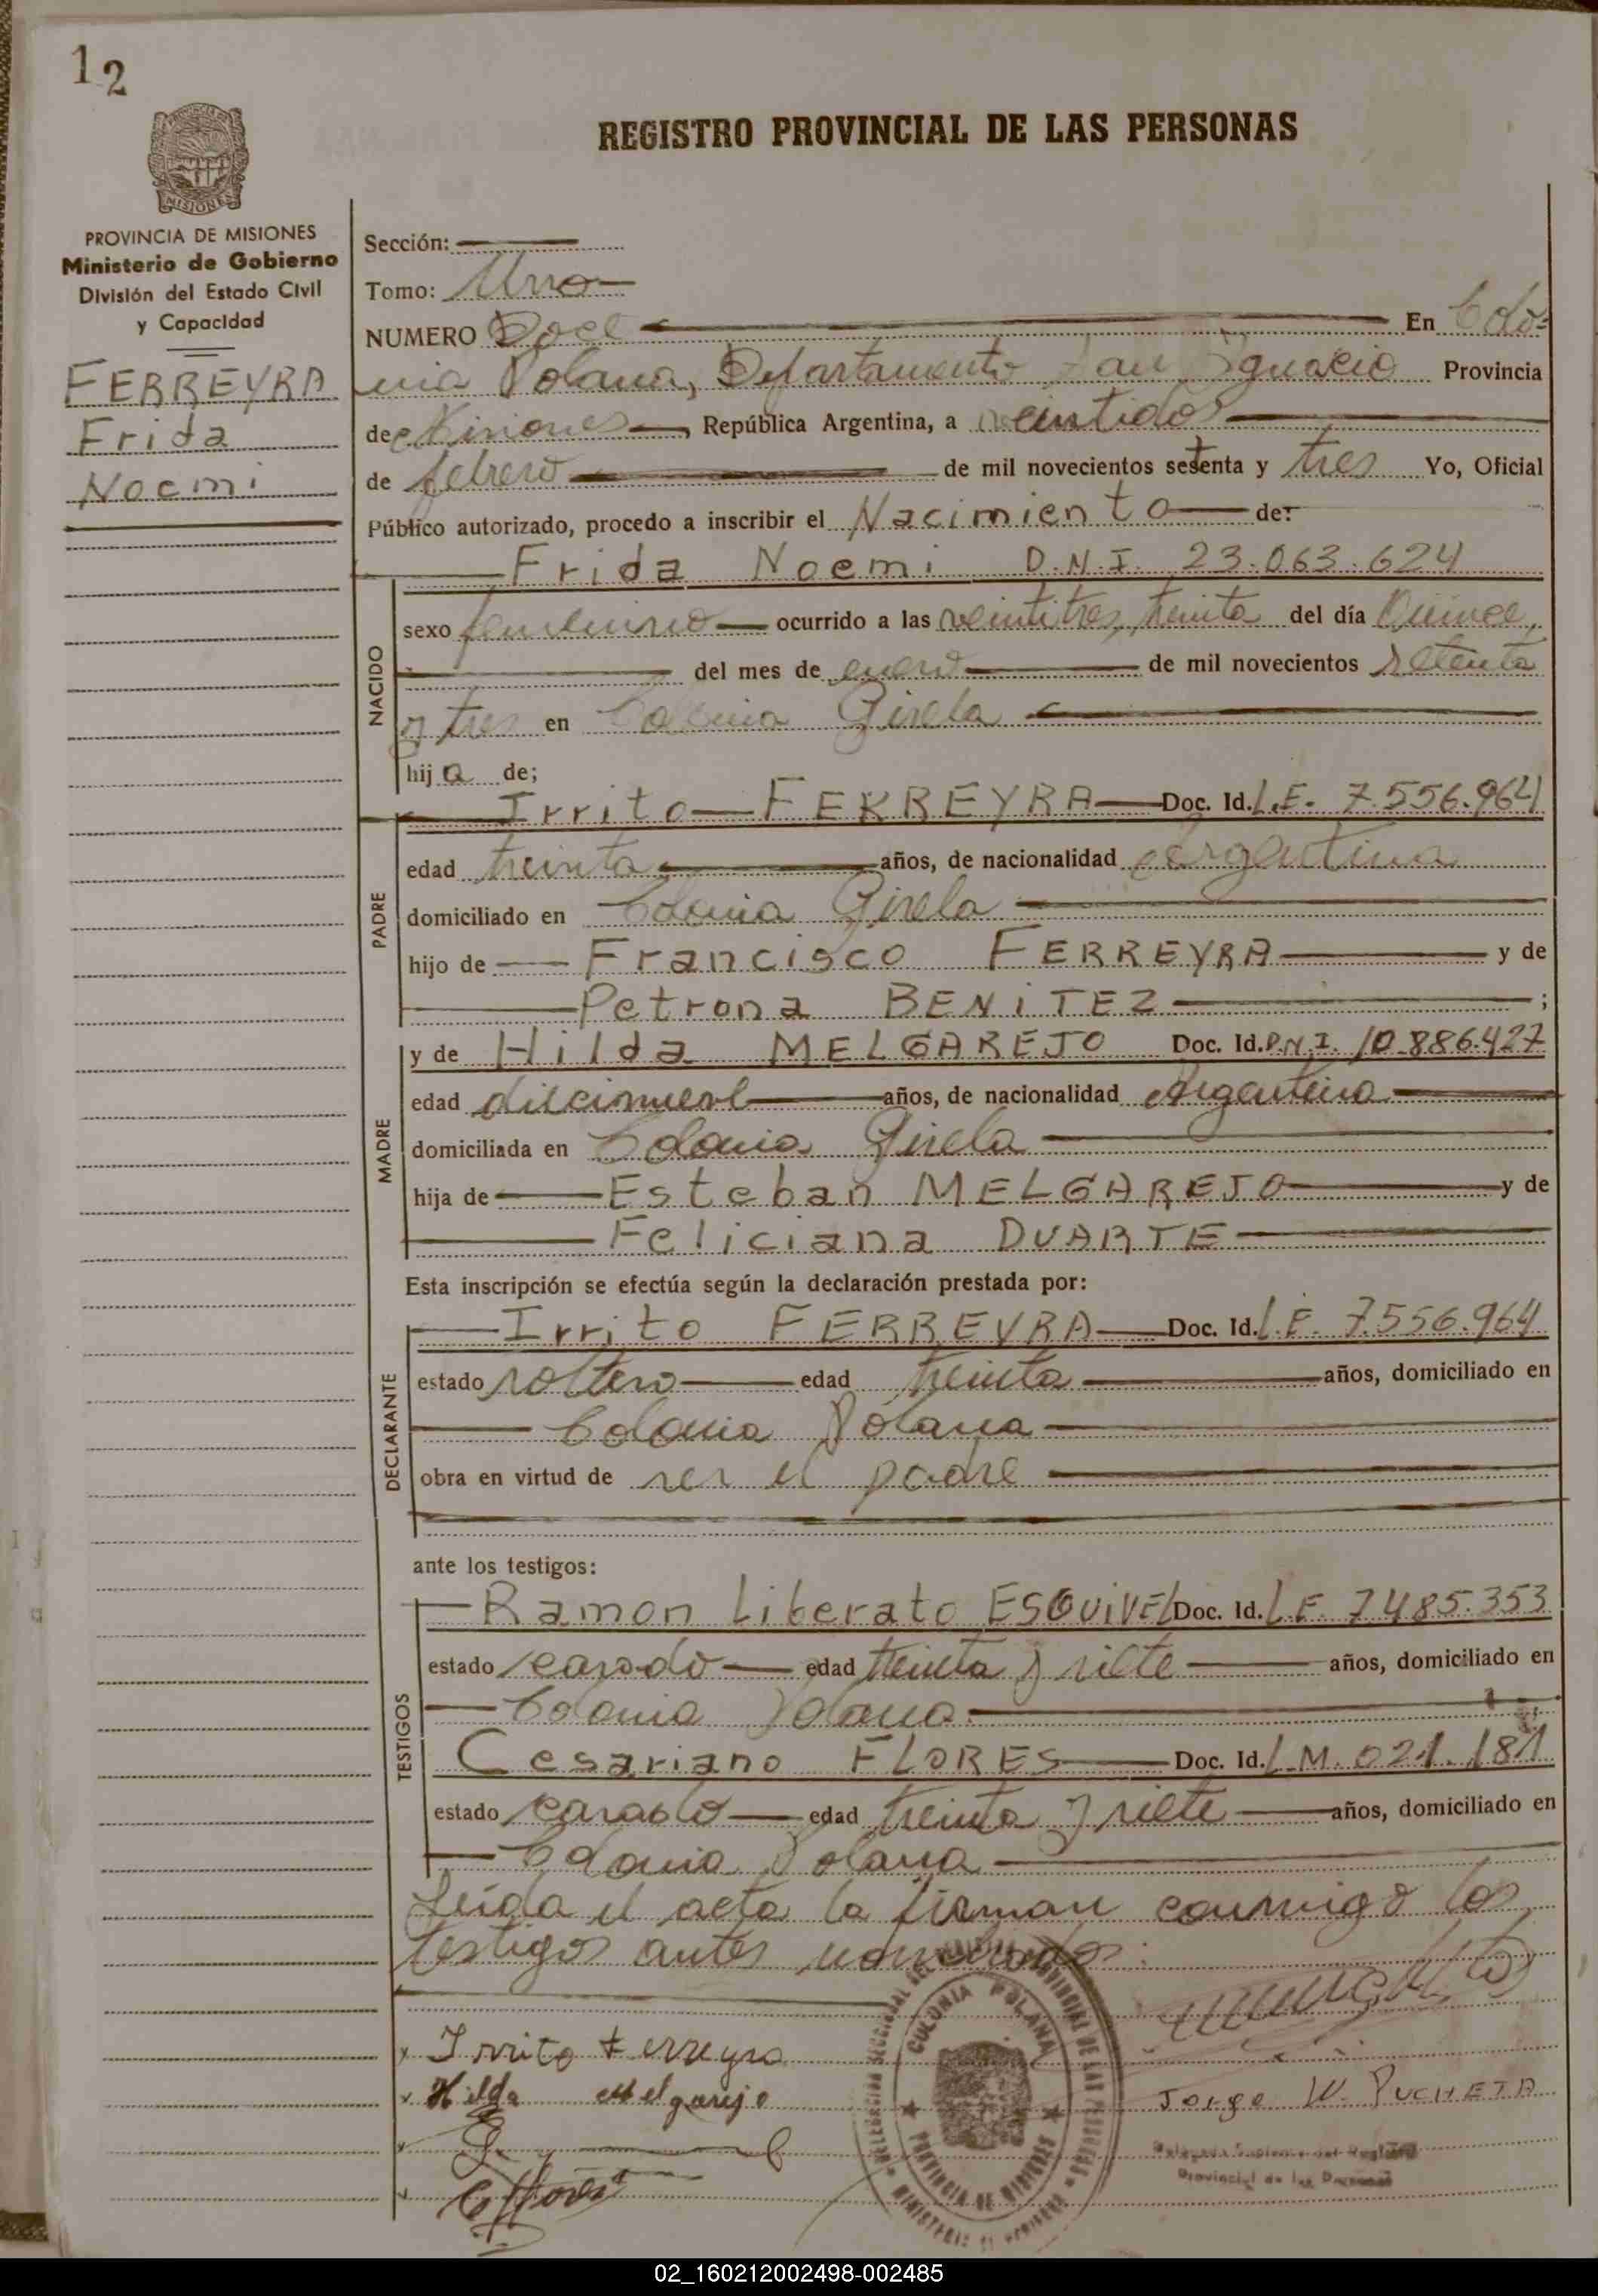 12
REGISTRO PROVINCIAL DE LAS PERSONAS
MISIONES
PROVINCIA DE MISIONES
Ministerio de Gobierno
División del Estado Civil
y Capacidad
FERREYRA
Frida
Noemi
Sección:
Tomo: Uno
NUMERO Doce En Colo-
nia Polana, Departamento San Ignacio Provincia
de Misiones, República Argentina, a veintidos
de febrero de mil novecientos setenta y tres Yo, Oficial
Público autorizado, procedo a inscribir el Nacimiento de:
Frida Noemi D.N.I. 23.063.624
NACIDO
sexo femenino ocurrido a las veintitres, treinta del día Quince,
del mes de enero de mil novecientos setenta
y tres en Colonia Gisela
hija de;
Irrito FERREYRA Doc. Id. L.E. 7.556.964
PADRE
edad treinta años, de nacionalidad Argentina
domiciliado en Colonia Gisela
hijo de Francisco FERREYRA y de
Petrona BENITEZ ;
MADRE
y de Hilda MELGAREJO Doc. Id. D.N.I. 10.886.427
edad diecinueve años, de nacionalidad Argentina
domiciliada en Colonia Gisela
hija de Esteban MELGAREJO y de
Feliciana DUARTE
Esta inscripción se efectúa según la declaración prestada por:
DECLARANTE
Irrito FERREYRA Doc. Id. L.E. 7.556.964
estado soltero edad treinta años, domiciliado en
Colonia Polana
obra en virtud de ser el padre
ante los testigos:
TESTIGOS
Ramon Liberato ESQUIVEL Doc. Id. L.E. 7.485.353
estado casado edad treinta y siete años, domiciliado en
Colonia Polana
Cesariano FLORES Doc. Id. L.M. 021.181
estado casado edad treinta y siete años, domiciliado en
Colonia Polana
Leída el acta la firman conmigo los
testigos antes nombrados:
Irrito Ferreyra
Hilda Melgarejo
COLONIA POLANA
PROVINCIA DE MISIONES
Jorge W. PUCHETA
Delegado Suplente del Registro
Provincial de las Personas
02_160212002498-002485